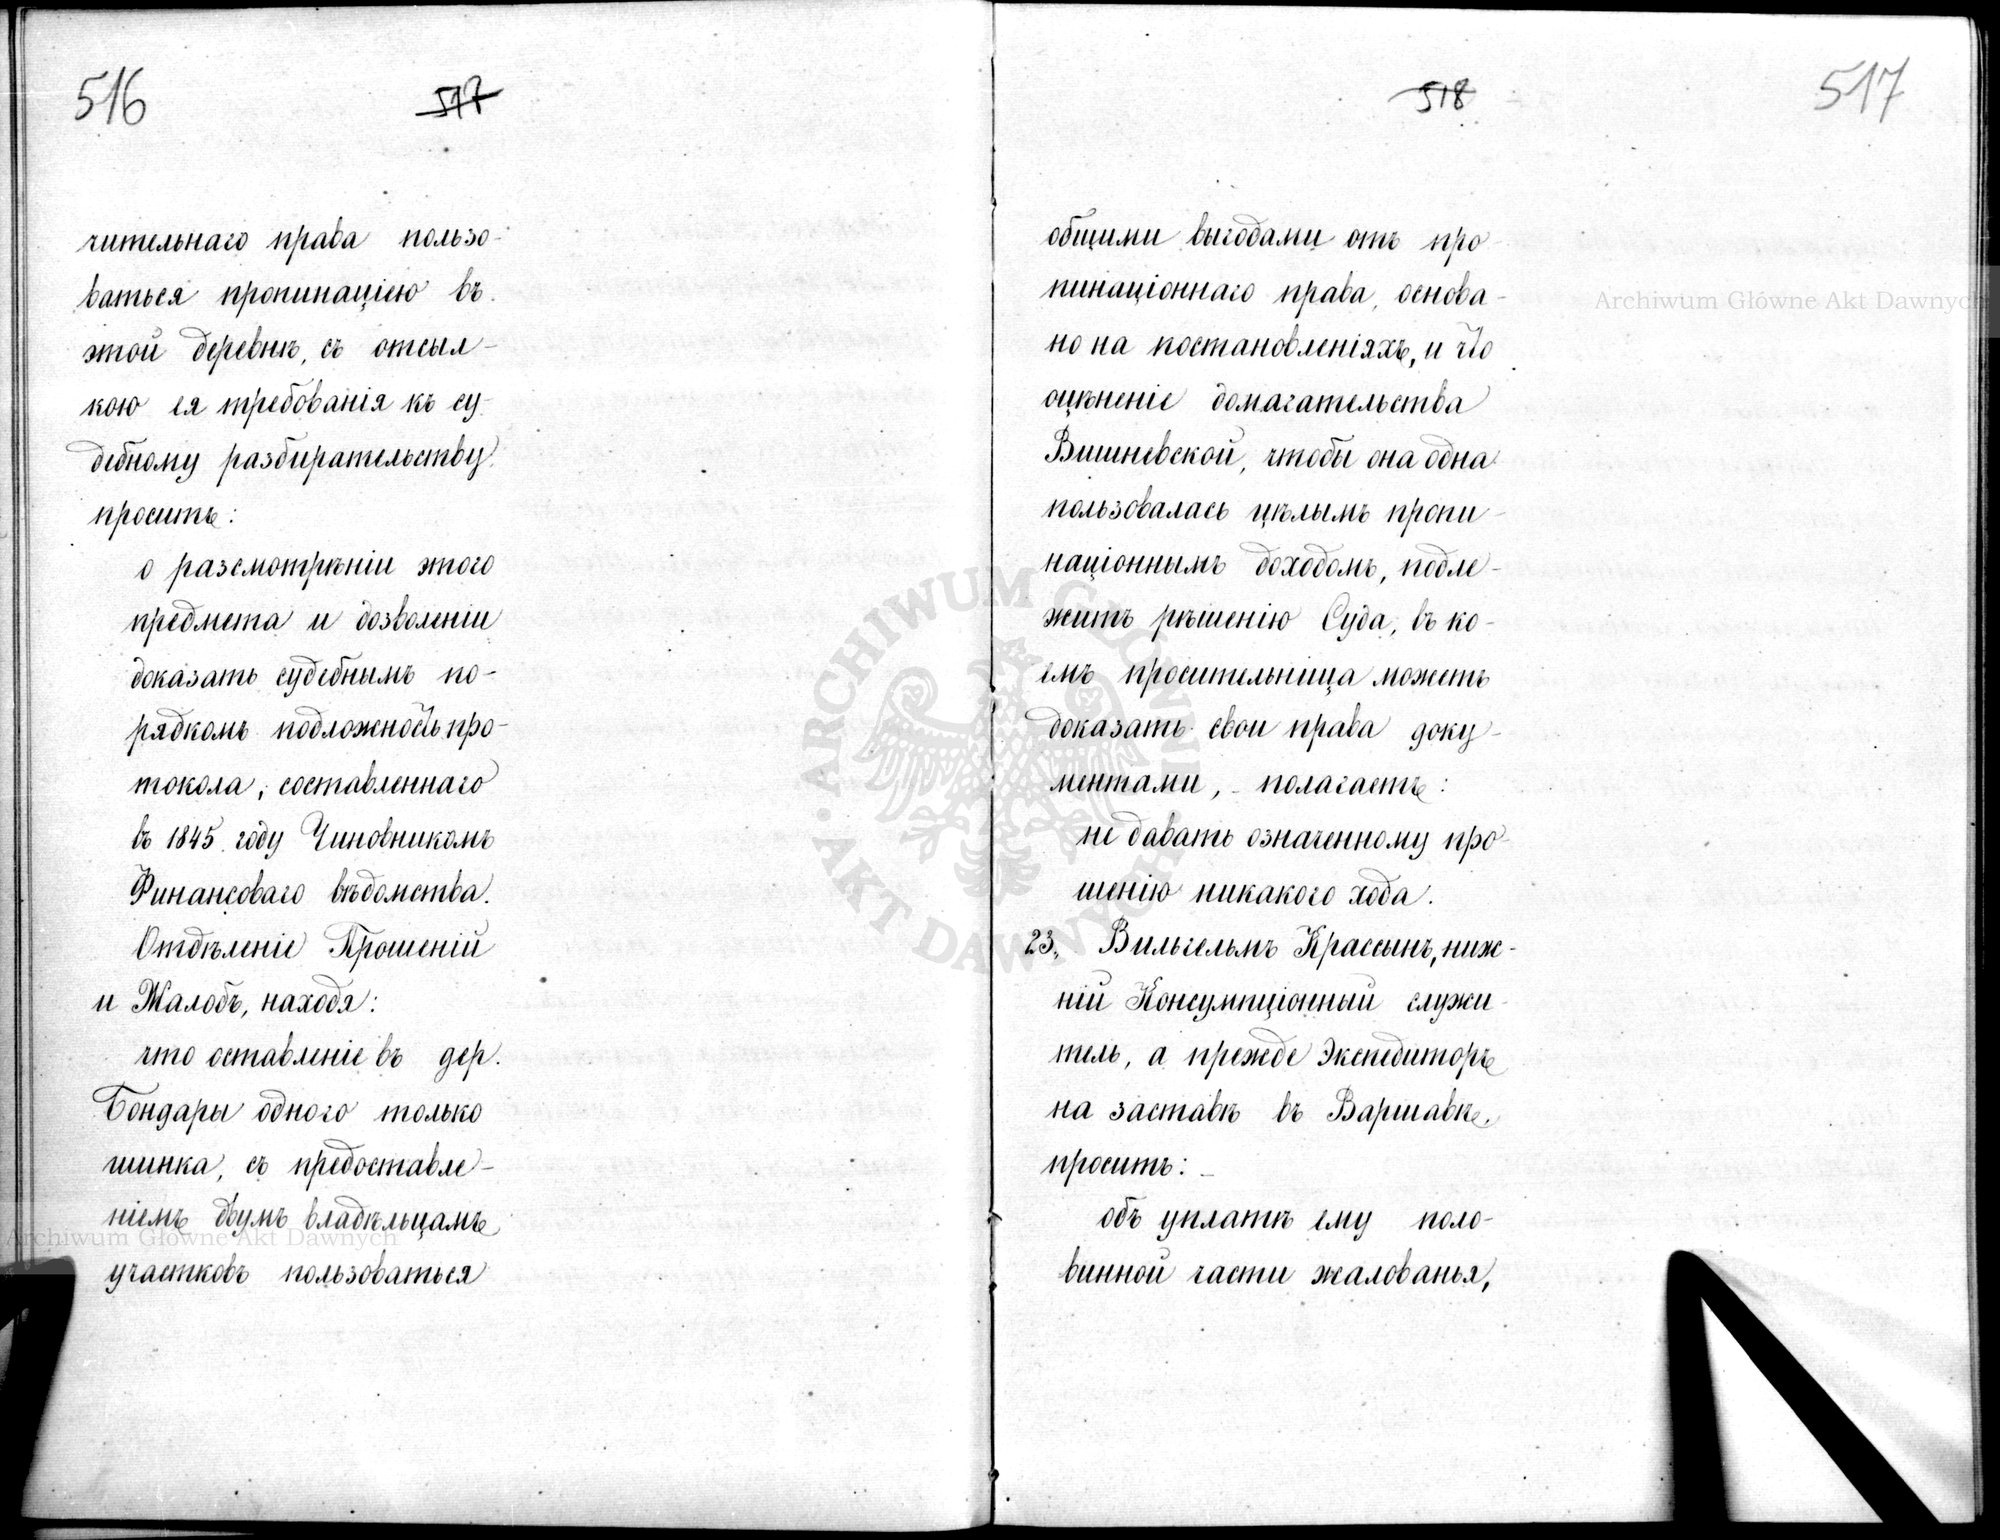 516
517
чительнаго права пользо-
ваться пропинаціею въ
этой деревнѣ, съ отсыл-
кою ея требованія къ су-
дебному разбирательству
просить:
о разсмотрѣніи этого
предмета и дозволеніи
доказать судебнымъ по-
рядкомъ подложность про-
токола, составленнаго
въ 1845 году Чиновникомъ
Финансоваго вѣдомства.
Отдѣленіе Прошеній
и Жалобъ, находя:
что оставленіе въ дер.
Бондары одного только
шинка, съ предоставле-
ніемъ двумъ владѣльцамъ
участковъ пользоваться
518
517
общими выгодами отъ про-
пинаціоннаго права, основа-
но на постановленіяхъ, и что
оцѣненіе домагательства
Вишневской, чтобы она одна
пользовалась цѣлымъ пропи-
націоннымъ доходомъ, подле-
житъ рѣшенію Суда, въ ко-
емъ просительница можетъ
доказать свои права доку-
ментами, - полагаетъ:
не давать означенному про-
шенію никакого хода.
23. Вильгельмъ Крассынъ, ниж-
ній Консумпціонный служи-
тель, а прежде Экспедиторъ
на заставѣ въ Варшавѣ,
проситъ: -
объ уплатѣ ему поло-
винной части жалованья,
Archiwum Główne Akt Dawnych
Archiwum Główne Akt Dawnych
ARCHIWUM GŁÓWNE · AKT DAWNYCH ·